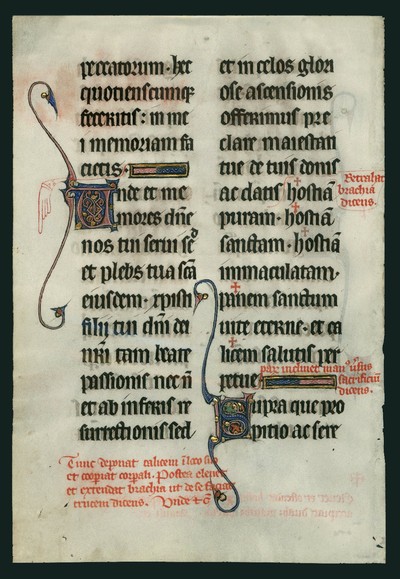 peccatorum. hec
quotienscumq;
feceritis: in me
i memoriam fa
cietis.
Unde et me
mores dñe
nos tui serui sꝫ
et plebs tua scā
eiusdem. xpisti
filij tui dñi dei
nr̄i tam beate
passionis nec n̄
et ab inferis re
surrectionis sed
et in celos glori
ose ascensionis
offerimus pre
clare maiestati
tue de tuis donis
ac datis hostiā
puram. hostiā
sanctam. hostiā
immaculatam.
panem sanctum
uite eterne. et ca
licem salutis per
petue
Supra que pro
pitio ac sere
Retrahat
brachia
dicens.
inclinet man
sacrificium
dicens.
Tunc deponat calicem ī loco suo
et cooperiat corpali. Postea eleuet
et extendat brachia ut de se faciat
crucem dicens. Unde &